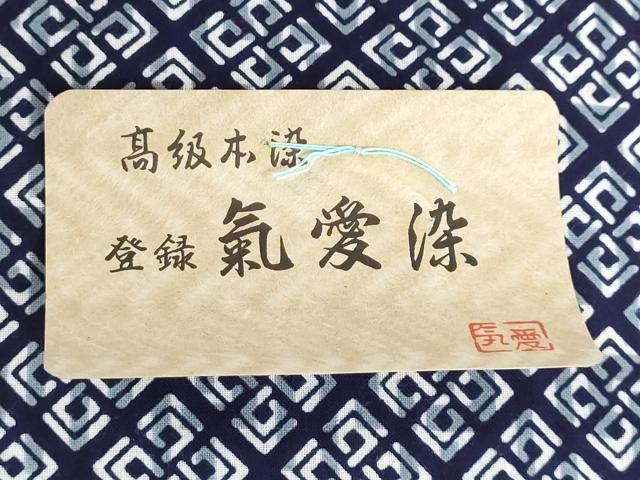 髙級本染
登録 氣愛染
気愛